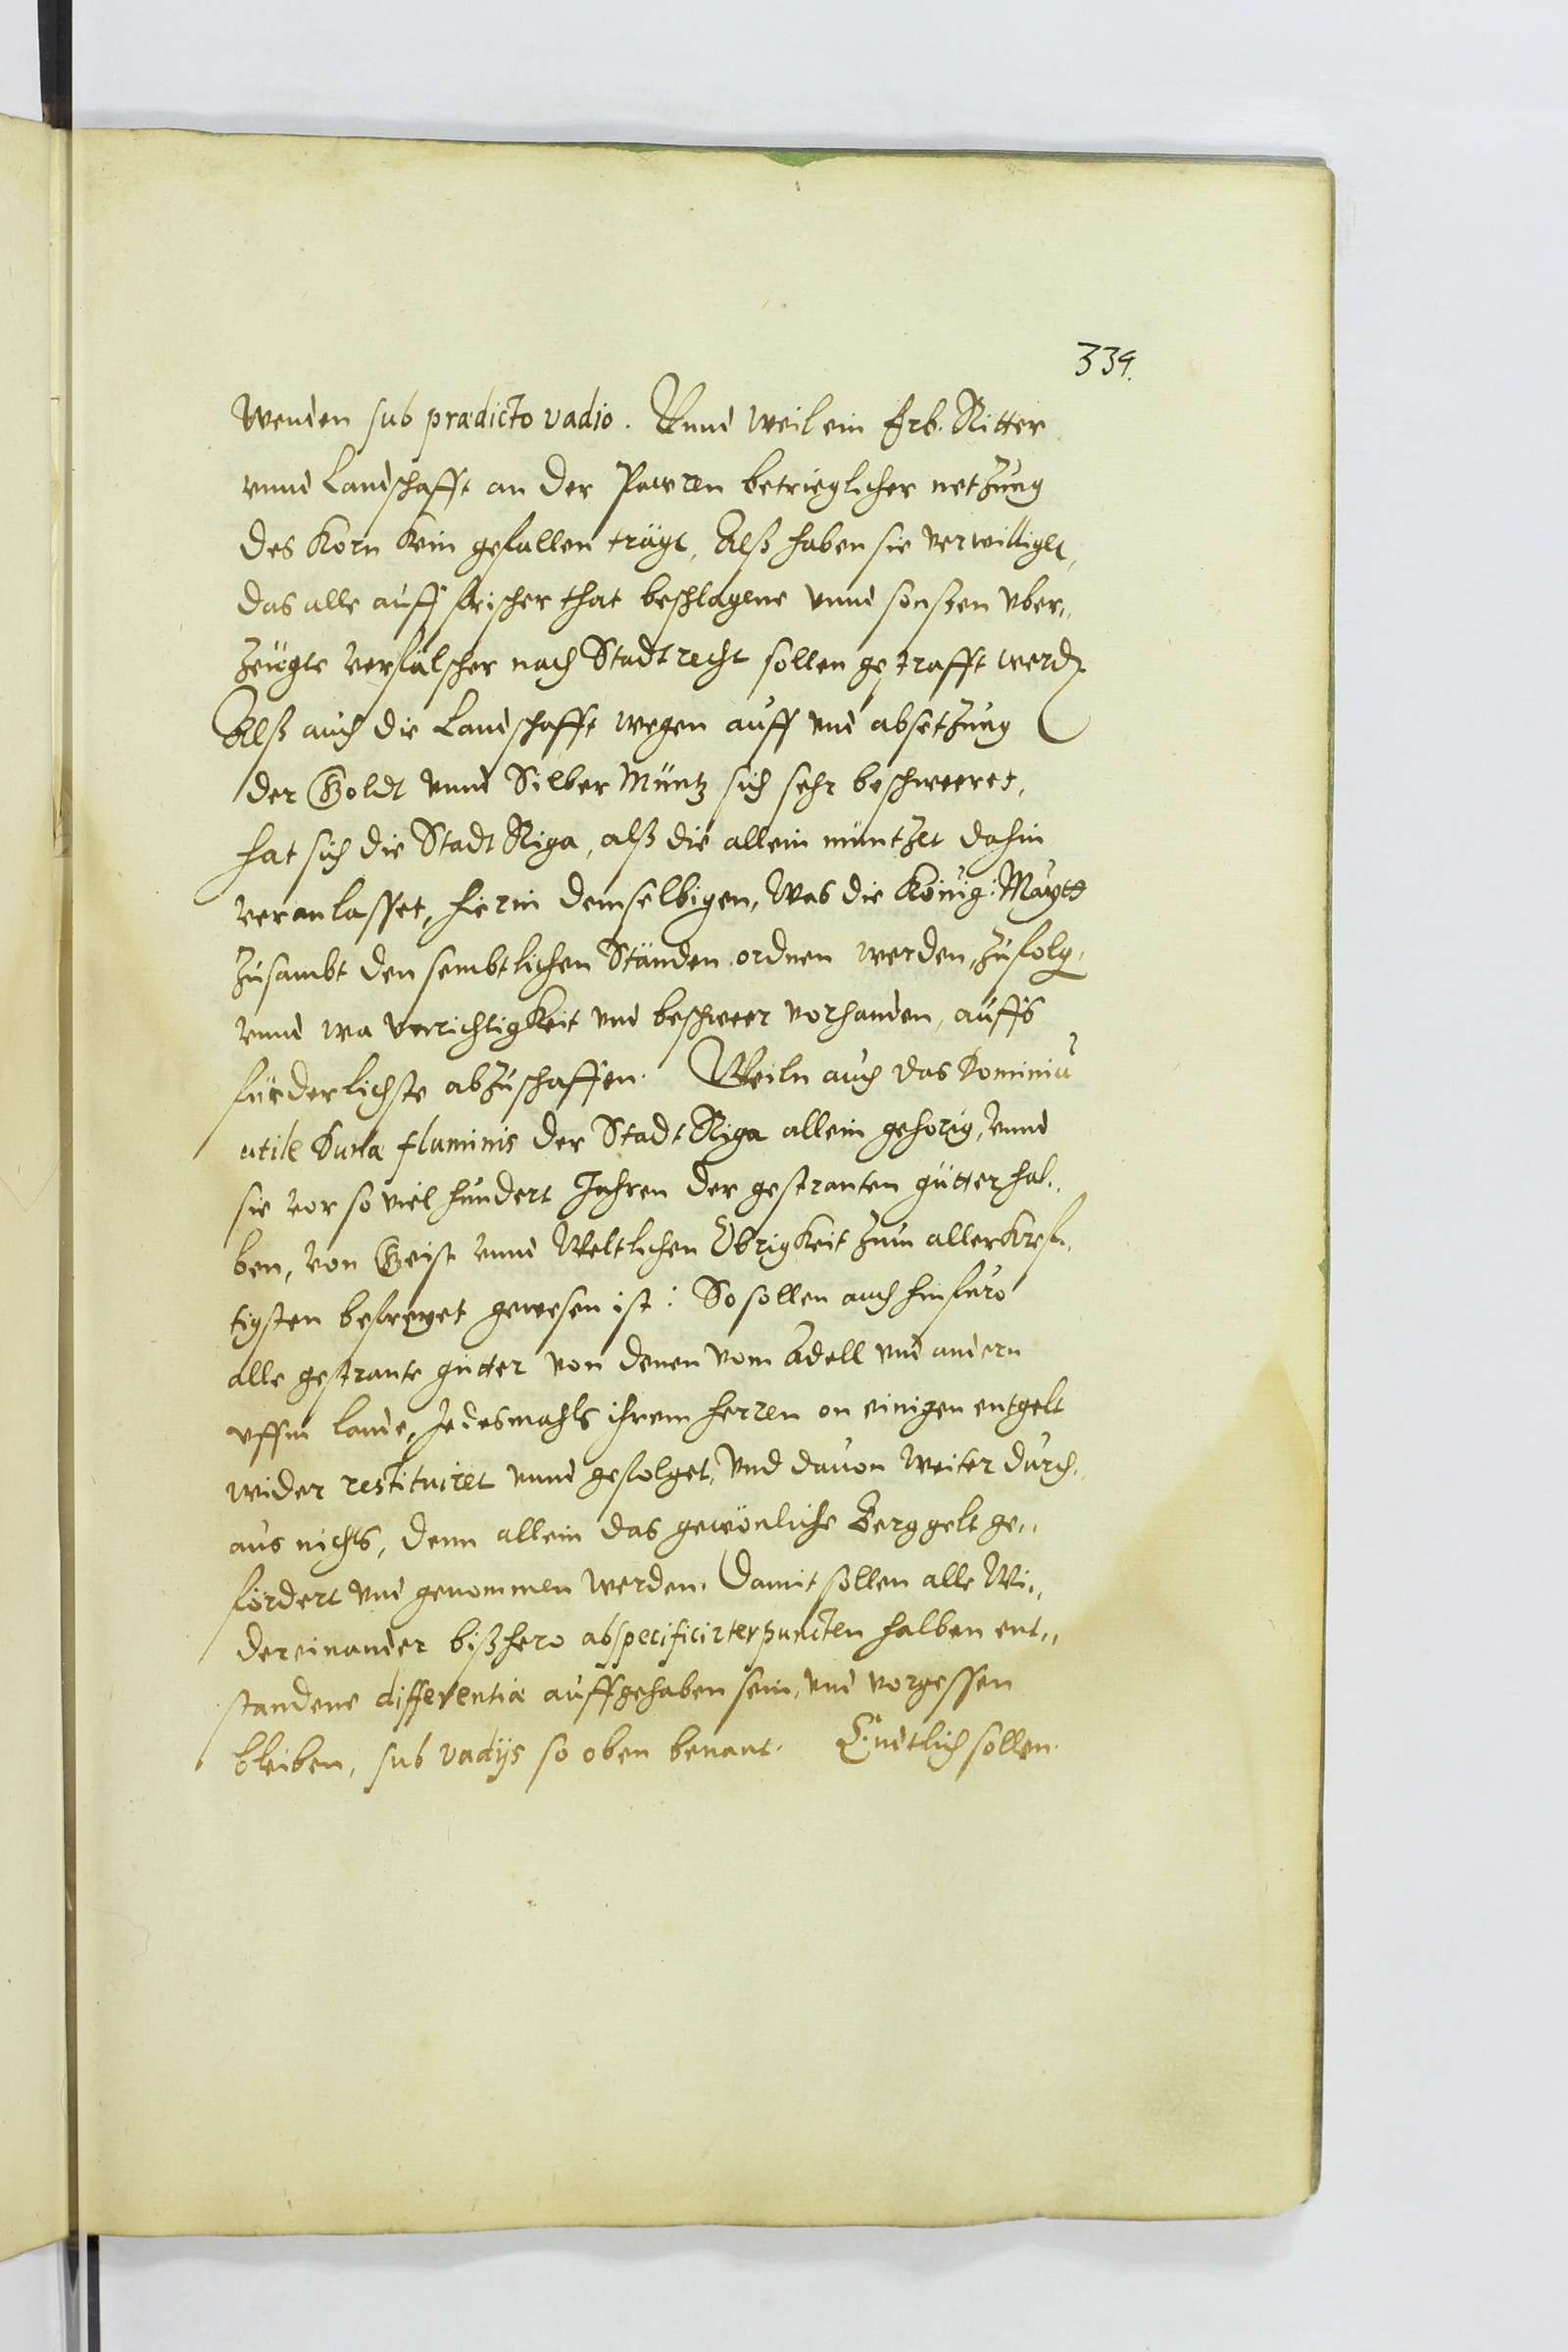 339.
Wenden sub prædicto vadio. Vnnd weil ein Erb. Ritter
vnnd Landschafft an der Pawren betrieglicher netzung
des Korn kein gefallen trägt, Alß haben sie verwilligt,
das alle auff frischer that beschlagene vnnd sonsten vber„
zeugte verfälscher nach Stadtrecht sollen gestrafft werdn
Alß auch die Landschafft wegen auff vnd absetzung
der Goldt vnnd Silber Müntz sich sehr beschweeret,
hat sich die Stadt Riga, alß die allein müntzet dahin
veranlasset, hierin demselbigen, was die König: Maytt
zusambt den sembtlichen Ständen ordnen werden, zufolg,
vnnd wa vnrichtigkeit vnd beschweer vorhanden, auffs
fürderlichste abzuschaffen. Weiln auch das Dominiũ
utile Dunæ fluminis der Stadt Riga allein gehorig, vnnd
sie vor so viel hundert Jahren der gestranten gütter hal„
ben, von Geist vnnd Weltlichen Obrigkeit zum allerkref„
tigsten befreyet gewesen ist: So sollen auch hinfuro
alle gestrante gütter von denen vom Adell vnd andern
vffm lande, Jedesmahls ihrem herren on einigen entgelt
wider restituiret vnnd gefolget, vnd dauon weiter durch„
aus nichts, denn allein das gewönliche Berggelt ge„
fördert vnd genommen werden. Damit sollen alle Wi„
dereinander bißhero abspecificirter puncten halben ent„
standene differentiæ auffgehaben sein, vnd vorgessen
bleiben, sub vadijs so oben benant. Endtlich sollen